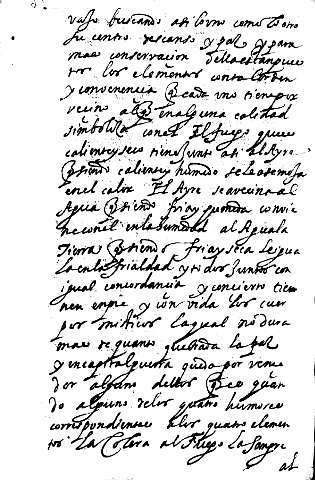 va su buscando asi lo uno como lo otro
su centro descanso y paz y para
mas conservacion della estan puestos
tos los elementos con tal orden
y conveniencia que cada uno tiene por
vecino al que en alguna calidad
simboliza con el. El fuego que es
caliente y seco tiene junto a si el Ayre
que siendo caliente y humedo se le asemeja
en el calor. El Ayre se avecina al
Agua que siendo fria y humeda convie
ne con el en la humedad al Agua la
Tierra que siendo fria y seca le igua
la en la frialdad y todos juntos con
igual concordancia y concierto tie
nen en pie y con vida los cuer
pos misticos la qual no dura
mas de quanto quebrada la paz
y en capital guerra queda por vence
dor alguno dellos que es quan
do alguno de los quatro humores
correspondientes a los quatro elemen
tos. La Colera al Fuego la Sangre
al